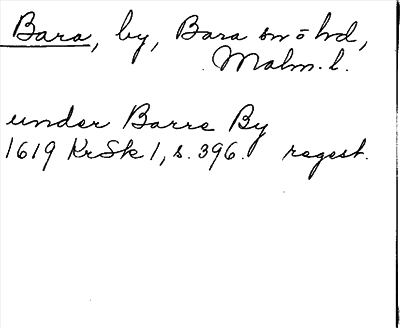 Bara, by, Bara sn o hd,
Malm. l.
under Barre By
1619 KrSk 1, s. 396. regest.